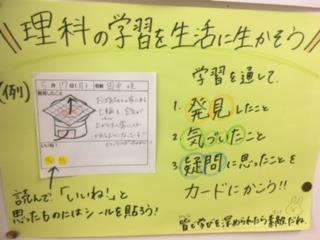 理科の学習を生活に生かそう
(例)
学習を通して、
1. 発見したこと
2. 気づいたこと
3. 疑問に思ったことを
カードにかこう!!
読んで、「いいね!」と
思ったものにはシールを貼ろう!
皆で学びを深められたら素敵だね。